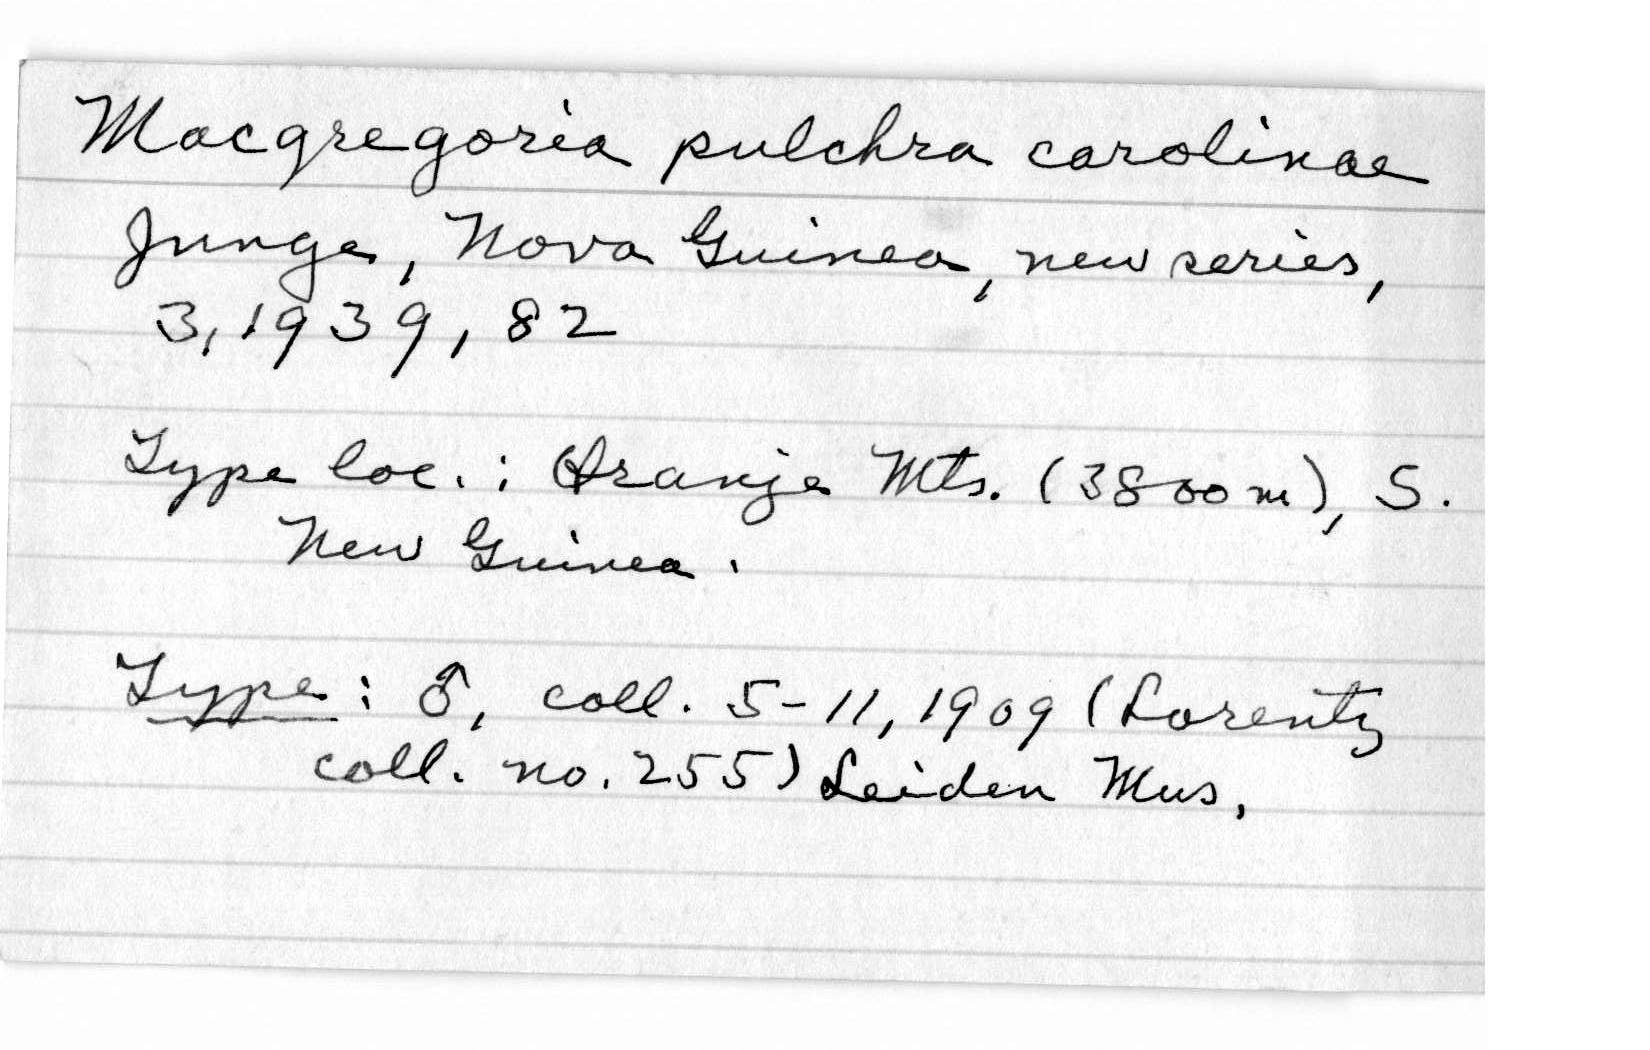 Macgregoria pulchra carolinae
Junge, Nova Guinea, new series,
3, 1939, 82
Type loc. : Oranje Mts. (3800 m), S.
New Guinea.
Type : ♂, coll. 5-11, 1909 (Lorentz
coll. no. 255) Leiden Mus.